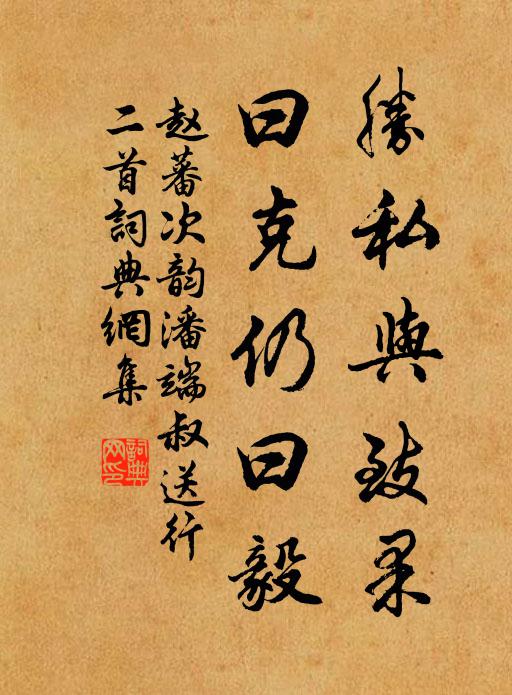 勝私與致果
曰克仍曰毅
赵蕃次韵潘端叔送行
二首詞典網集
詞典网印